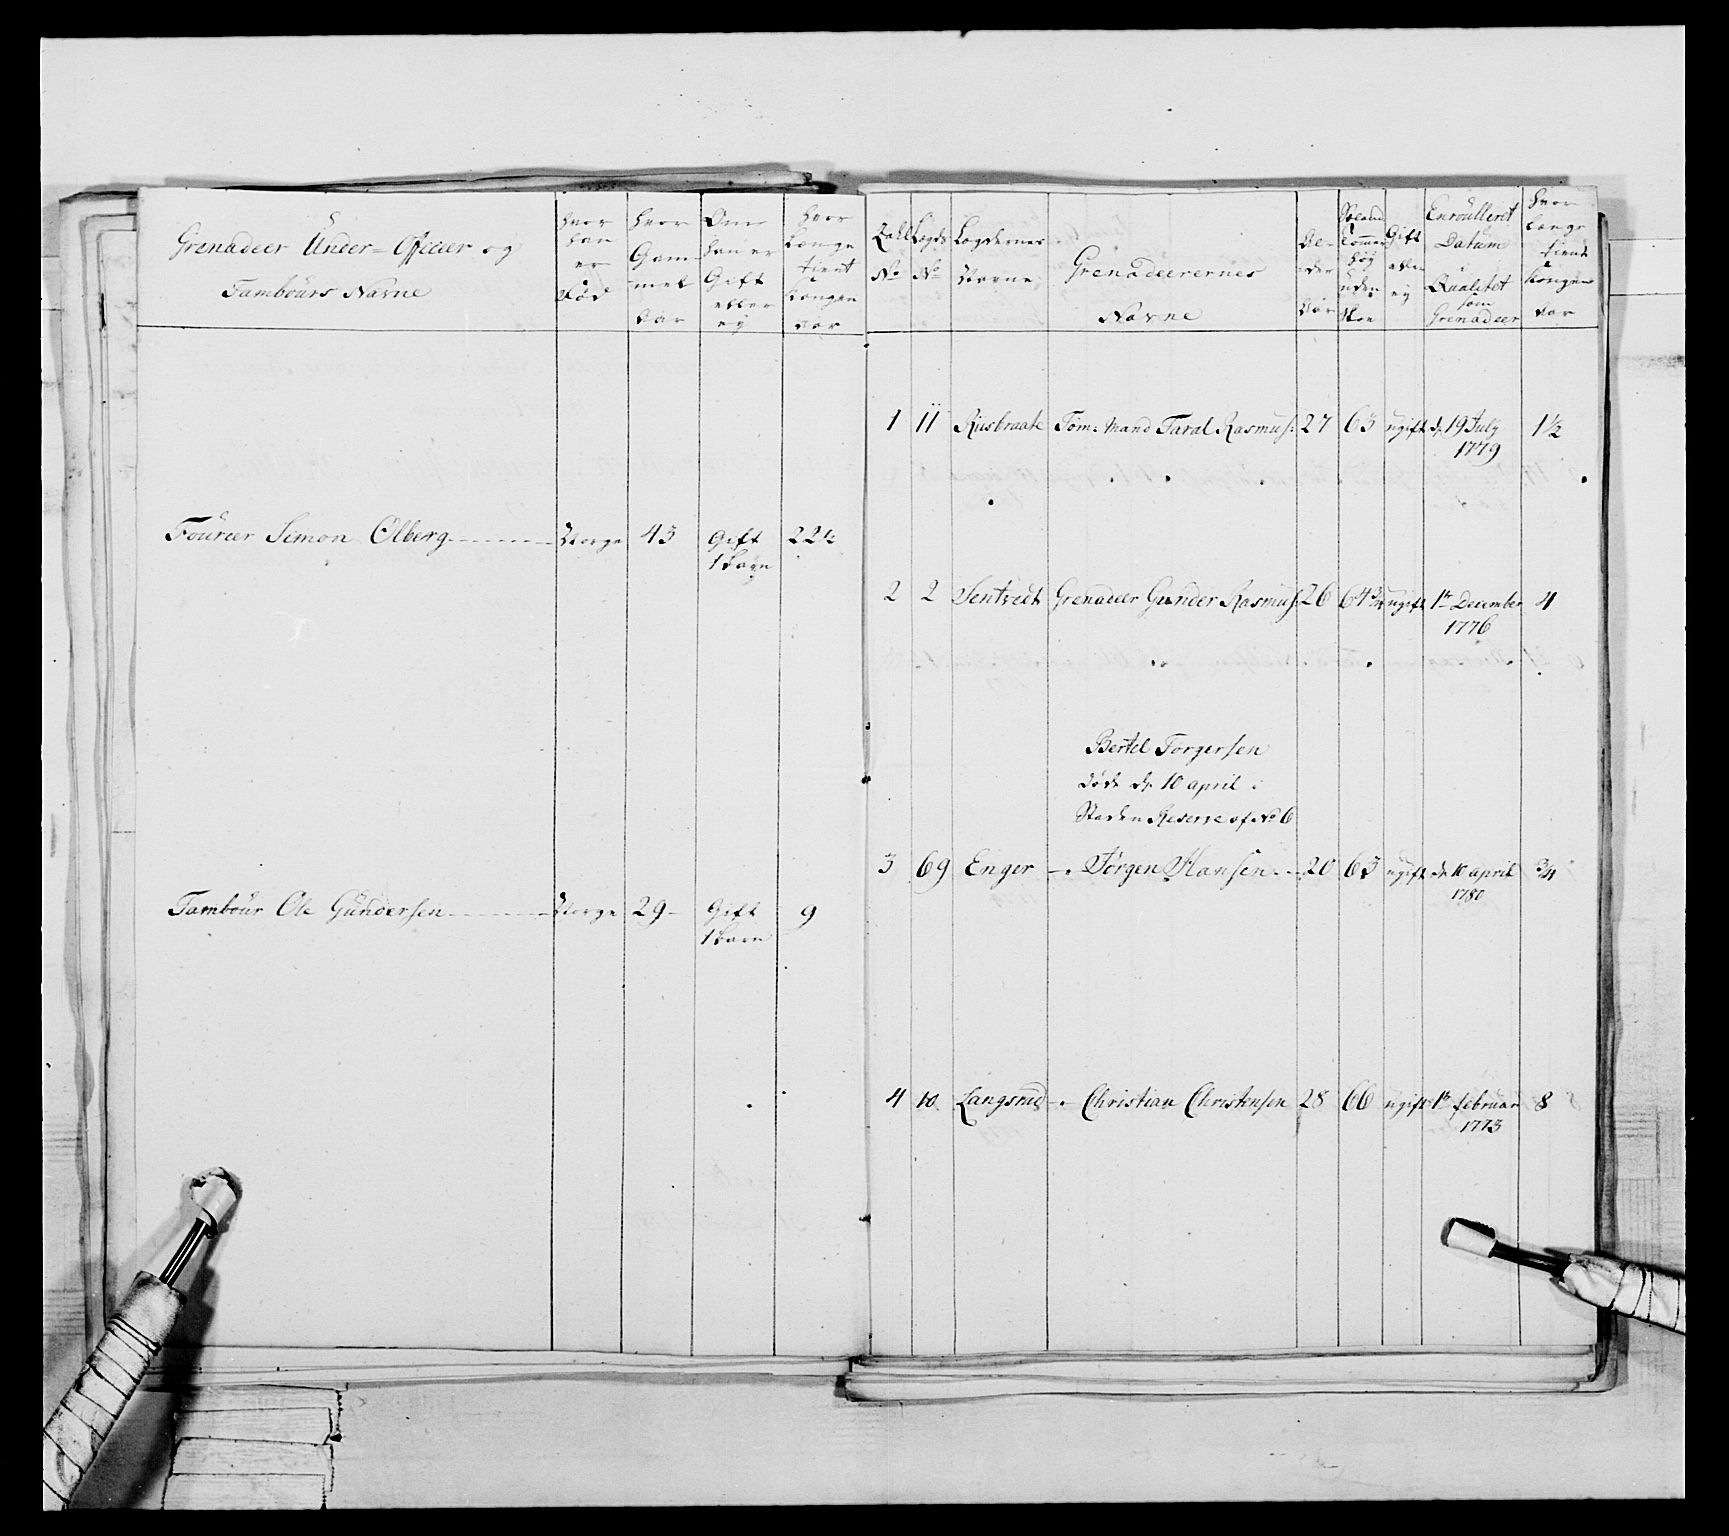 Grenadeer Under-Officier og
Tambours Navne
hvor
han
er
Fød
hvor
Gam-
mel
Aar
Om
han er
Gift
eller
ey
hvor
længe
tient
Kongen
Aar
Fourier Simon Olberg
Norge
43
Gift
1 barn
22½
Tambour Ole Gundersen
Norge
29
Gift
1 barn
9
No
Lægds
No
Lægdernes
Navne
Grenadeerernes
Navne
Al-
der
Aar
Tommer
høy
uden
Skoe
Gift
eller
ey
Enroulleret
Datum
i
Qualitet
som
Grenadeer
hvor
længe
tient
Kongen
Aar
1 11 Riisbraate Tøm: Mand Taral Rasmus: 27 63 ugift d. 19 July 1½
1779
2 2 Grenadeer Gunder Rasmus: 26 64¾ ugift 1te December 4
1776
Bertel Torgersen
døde d. 10 april i
Steden Reserve af No 6
3 69 Enger Jørgen Hansen 20 63 ugift d. 10 april ¾
1780
4 10 Langsrud Christian Christensen 28 66 ugift 1te februar 8
1773